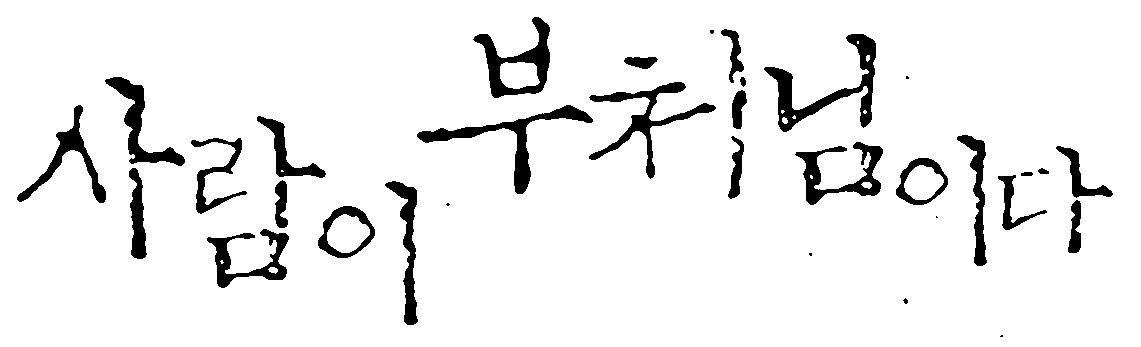 사람이 부처님이다